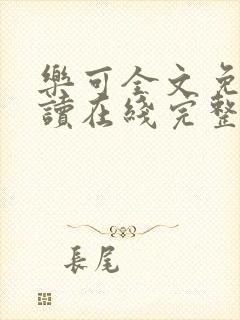 樂可全文免
讀在綫完整
長尾